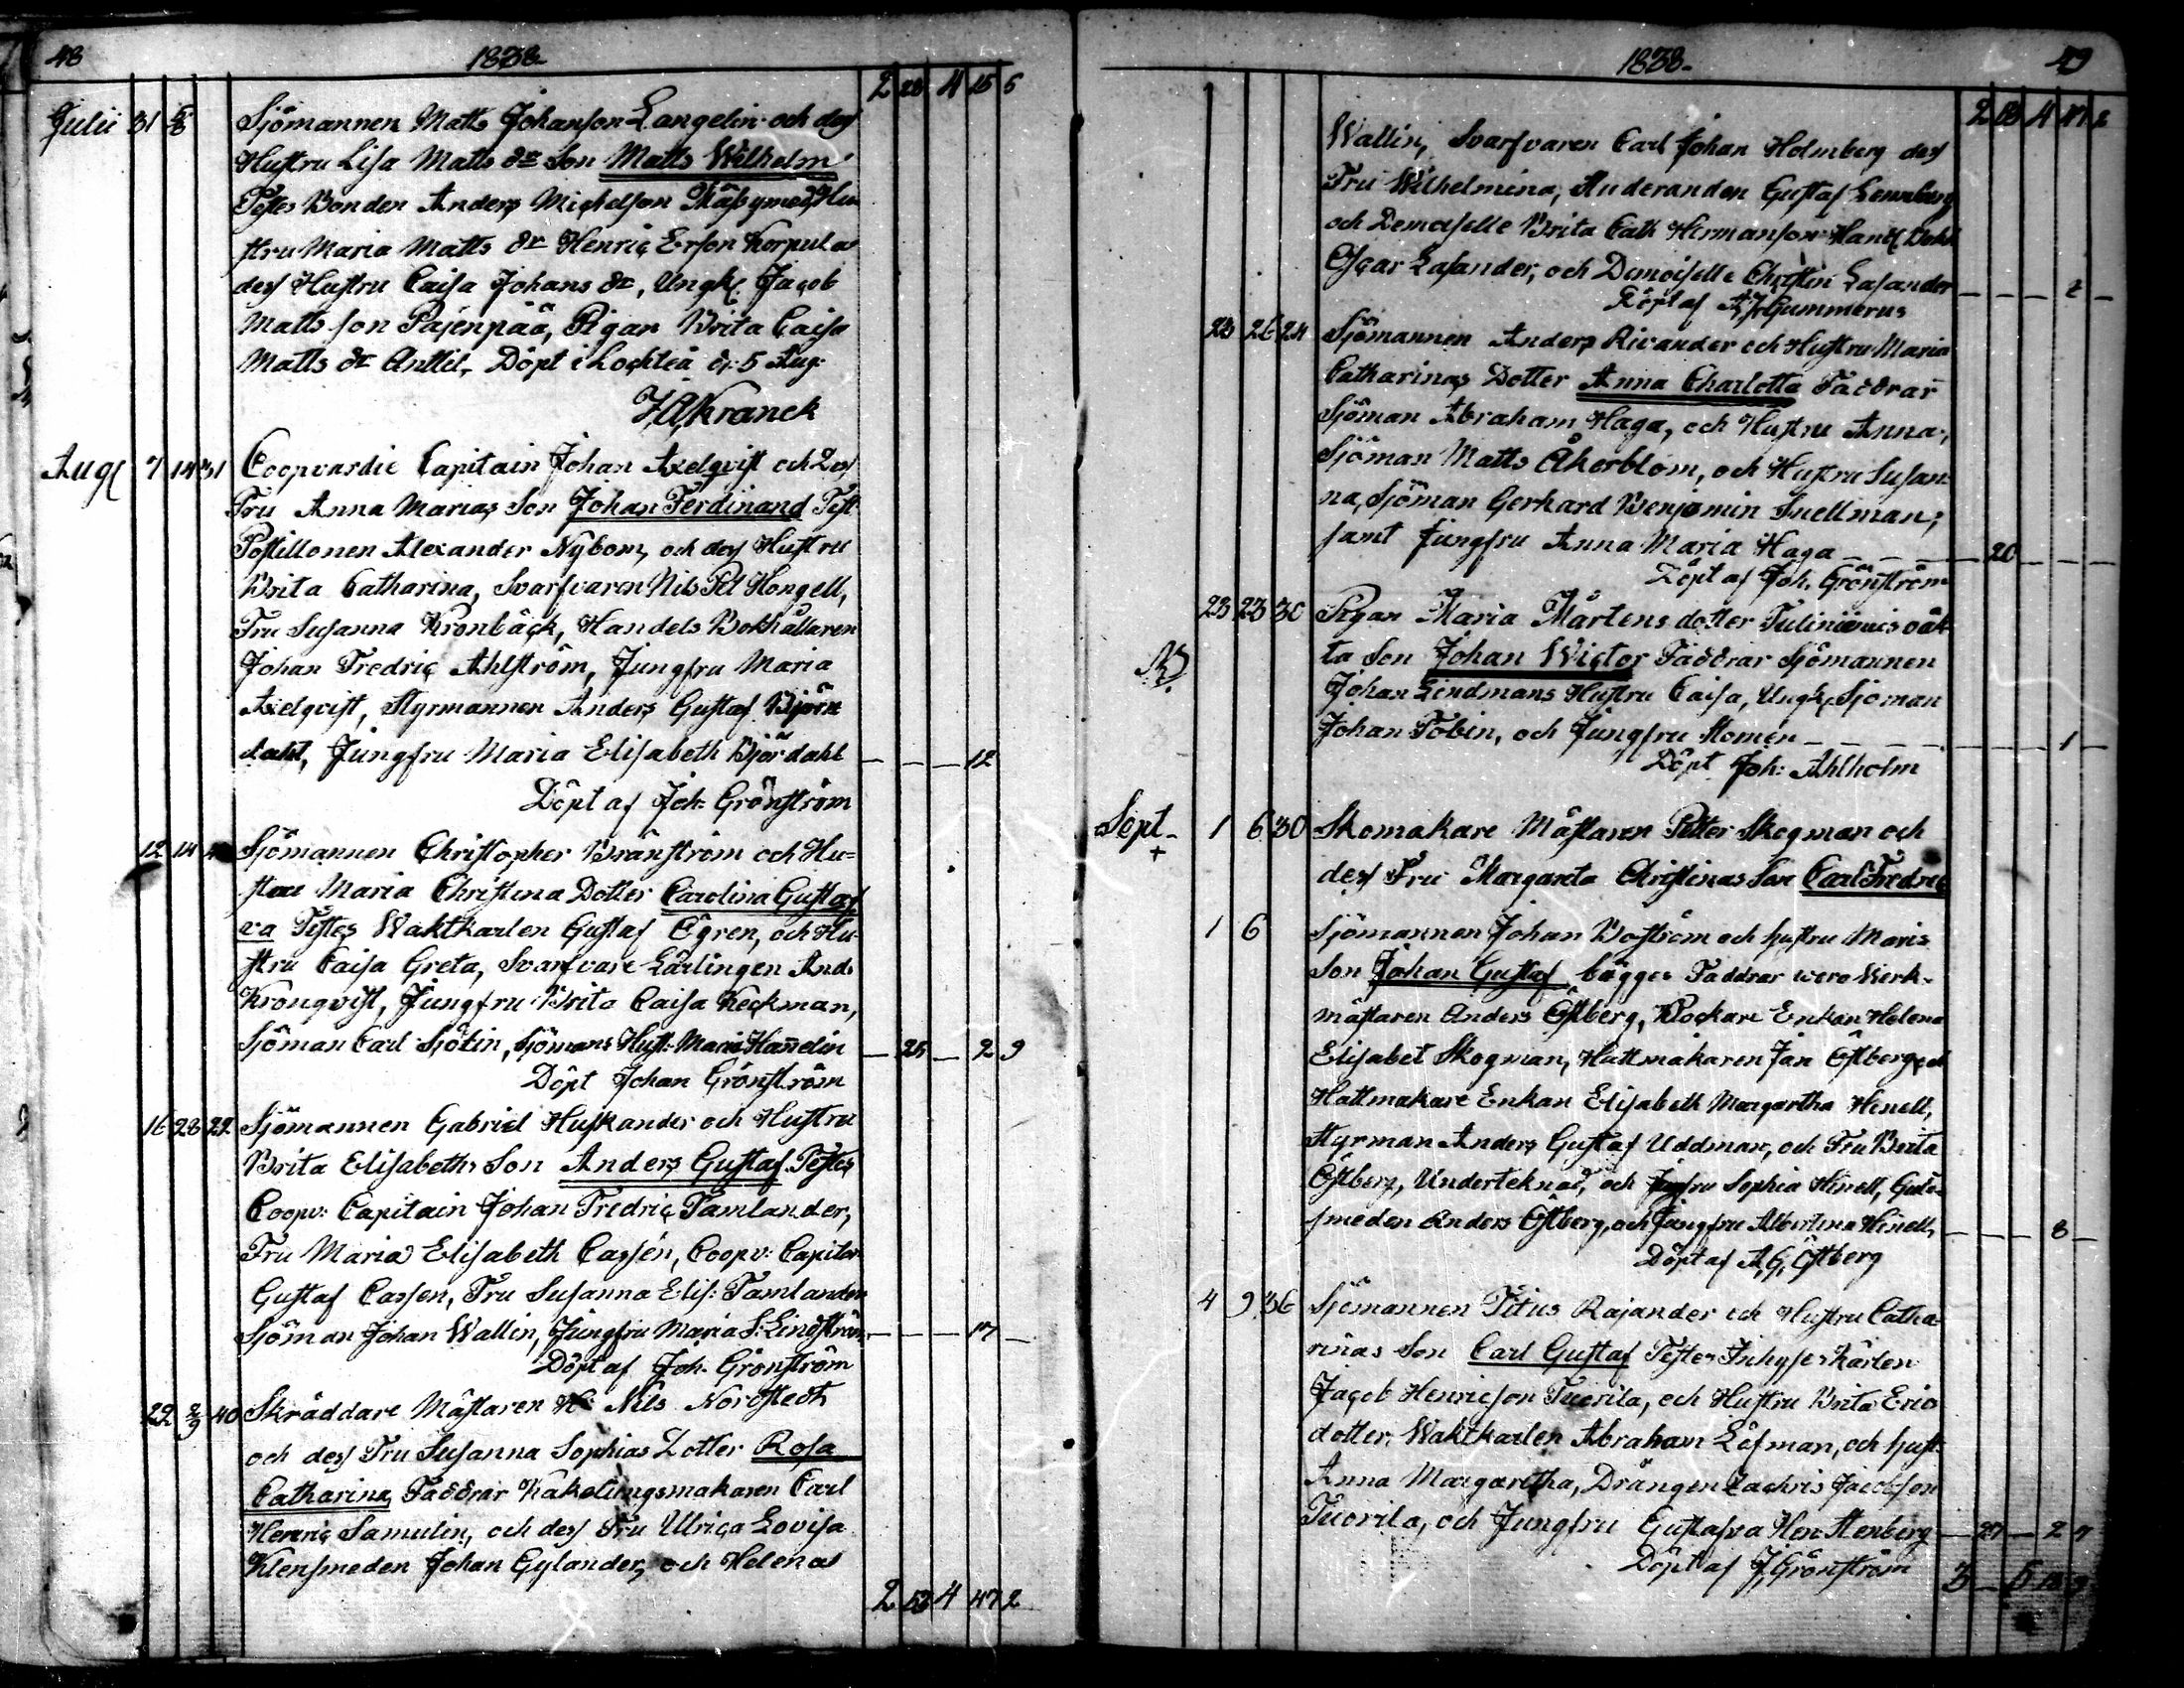 48 1838-
2 28 4 15 5
Julii 31 5/8 Sjömannen Matts Johanson Langelin och dess
Hustru Lisa Matts dr Son Matts Wilhelm
Testes Bonden Anders Michelson Hu-
stru Maria Matts dr Henric Erson Korpula
dess Hustru Caisa Johans dr, Ungk. Jacob
Mattsson Pajenpää, Pigan Brita Caisa
Matts dr Anttil, Döpt i Lochteå d. 5 Aug.
J.A. Kranck
Aug 7 14 31 Coopvardie Capitain Johan Axelqvist och dess
Fru Anna Marias Son Johan Ferdinand Test.
Postillonen Alexander Nybom, och dess Hustru
Brita Catharina, Svarfvaren Nils Pet Hongell,
Fru Susanna Kronbäck, Handels Bokhållaren
Johan Fredric Ahlström, Jungfru Maria
Axelqvist, Styrmannen Anders Gustaf Björn
dahl, Jungfru Maria Elisabeth Björdahl — — — 12
Döpt af Joh. Grönström
12 14 Sjömannen Christopher Bränström och Hu-
stru Maria Christina Dotter Carolina Gustaf
va Testes Waktkarlen Gustaf Ögren, och Hu-
stru Caisa Greta, Svarfvare Lärlingen And.
Kronqvist, Jungfru Brita Caisa Keckman,
Sjöman Carl Sjölin, Sjömans Hust. Maria Hannelin — 25 — 2 9
Döpt Johan Grönström
16 28 22 Sjömannen Gabriel Huskander och Hustru
Brita Elisabeths Son Anders Gustaf Testes
Coopv: Capitain Johan Fredric Tamlander,
Fru Maria Elisabeth Cassén, Coopv: Capiten
Gustaf Cassen, Fru Susanna Elis: Tamlander
Sjöman Johan Wallin, Jungfru Maria S: Lindström — — — 17 —
Döpt af Joh. Grönström
22 2/9 40 Skräddare Mästaren Nils Nordstedt
och dess Fru Susanna Sophias Dotter Rosa
Catharina, Faddrar Kakelungsmakaren Carl
Henric Samulin, och dess Fru Ulrica Lovisa
Klensmeden Johan Gylander, och Helena
2 53 4 47 2
1838- 49
2 53 4 47 2
Wallin, Svarfvaren Carl Johan Holmberg dess
Fru Wilhelmina, Studeranden Gustaf Lennberg
och Demoiselle Brita Cath Hermanson Hand. Bokh
Oscar Lasander, och Demoiselle Christin Lasander — — — 2 —
Döpt af Gummerus
23 26 24 Sjömannen Anders Rivander och Hustru Maria
Catharinas Dotter Anna Charlotta Faddrar
Sjöman Abraham Haga, och Hustru Anna,
Sjöman Matts Åkerblom, och Hustru Susan-
na, Sjöman Gerhard Benjamin Snellman,
samt Jungfru Anna Maria Haga — — — 20 — — —
Döpt af Joh. Grönström
23 23 30 Pigan Maria Mårtensdotter oäk-
ta Son Johan Wictor Faddrar Sjömannen
Johan Lindmans Hustru Caisa, Ungk. Sjöman
Johan Tobin, och Jungfru Stomen — — — 1 —
Döpt Joh: Ahlholm
Sept- 1 6 30 Skomakare Mästaren Petter Skogman och
+ dess Fru Margareta Christinas Son Carl Fredric
1 6 Sjömannen Johan Boström och hustru Maris
Son Johan Gustaf bägges Faddrar woro Werk-
mästaren Anders Östberg, Klockare Enkan Helena
Elisabet Skogman, Hattmakaren Jan Östberg och
Hattmakare Enkan Elisabeth Margartha Henell,
Styrman Anders Gustaf Uddman, och Fru Brita
Östberg, Underteknad, och Jungfru Sophia Henell, Guld-
smeden Anders Östberg, och Jungfru Albertina Henell, — — — 8 —
Döpt af A.G. Östberg
4 9 36 Sjömannen Titus Rajander och Hustru Catha-
rinas Son Carl Gustaf Testes Inhyseskarlen
Jacob Henricson Tuorila, och Hustru Brita Erics
dotter, Waktkarlen Abraham Löfman, och hust.
Anna Margaretha, Drängen Zachris Jacobson
Tuorila, och Jungfru Gustafva Hen Stenberg — 27 — 2 7
Döpt af J. Grönström